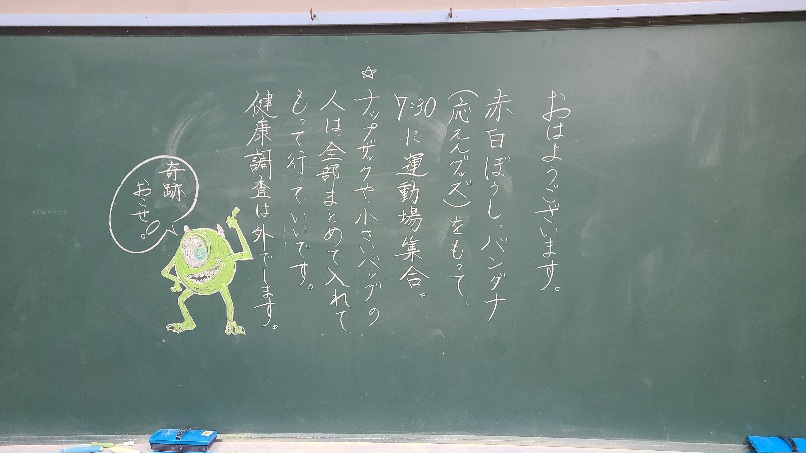 おはようございます。
赤白ぼうし、バンダナ
(応えんグッズ)をもって、
7:30に運動場集合。
☆ナップザックや小さいバッグの
人は、全部まとめて入れて
もって行っていいです。
健康調査は外でします。
奇跡
おこせ。